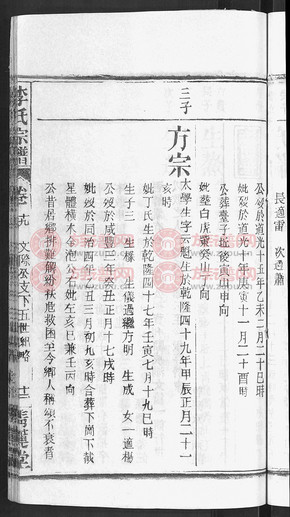 長適雷 次適蕭
公歿於道光十五年乙未二月二十巳時
公葬臺子坵後寅山申向
妣歿於道光十年庚寅十一月二十酉時
妣葬白虎
三子
方宗
太學生字 生於乾隆四十九年甲辰正月二十一
亥時
妣丁氏生於乾隆四十七年壬寅七月十九巳時
生子三 生樑 生儀過繼方明 生成 女一適楊
公歿於咸豐三年癸丑正月十七戌時
妣歿於同治四年乙丑三月初九亥時合葬下
星體橫木今池公右妣左亥巳兼壬丙向
公昔居鄉排難解紛扶危救困至今鄉人稱頌不衰者
李氏宗譜
卷十九
公支下五世紀略